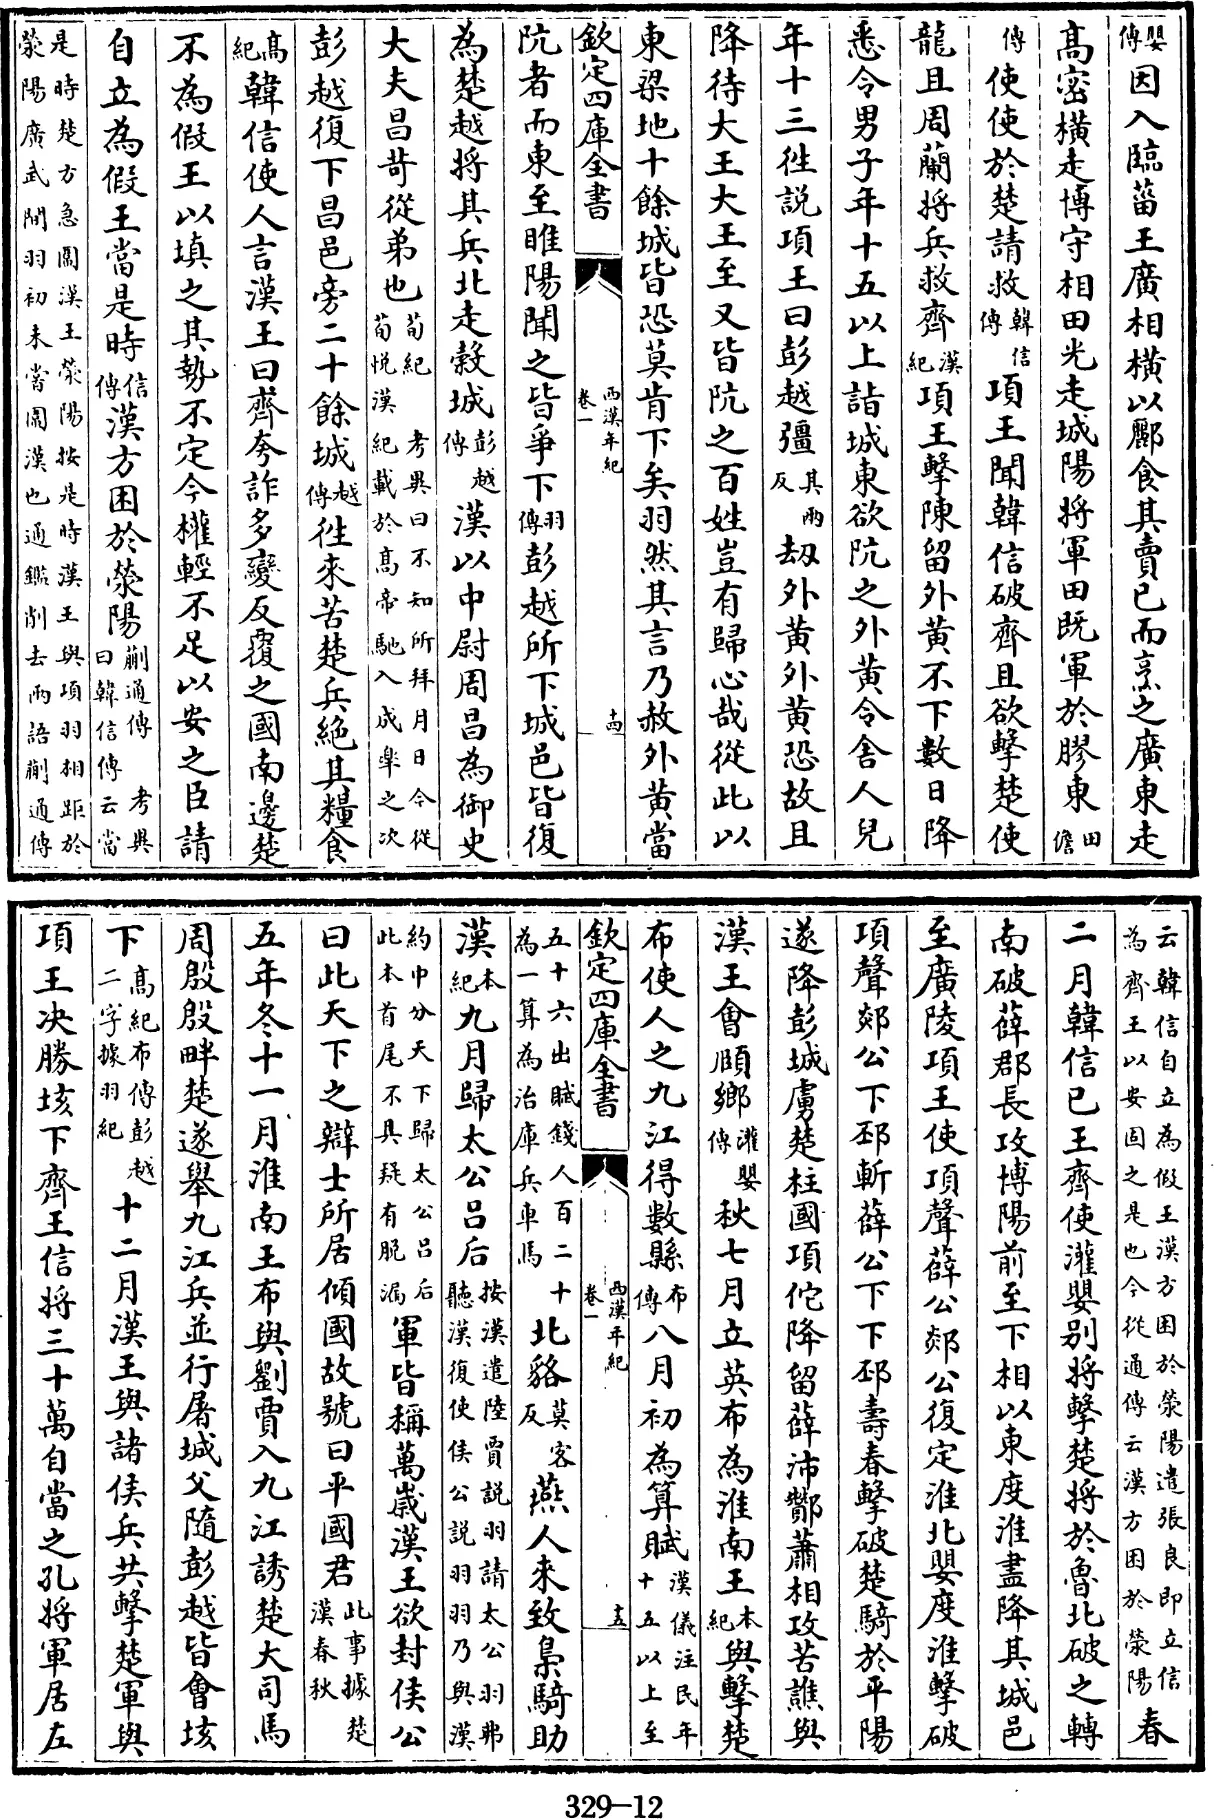 嬰傳因入臨菑王廣相橫以酈食其賣已而烹之廣東走
高密橫走博守相田光走城陽將軍田既軍於膠東田儋
傳使使於楚請救韓信傳項王聞韓信破齊且欲擊楚使
龍且周蘭將兵救齊漢紀項王擊陳留外黃不下數日降
悉令男子年十五以上詣城東欲阬之外黃令舍人兒
年十三徃說項王曰彭越彊其兩反劫外黃外黃恐故且
降待大王大王至又皆阬之百姓豈有歸心哉從此以
東梁地十餘城皆恐莫肯下矣羽然其言乃赦外黃當
欽定四庫全書 西漢年紀卷一 十四
阬者而東至睢陽聞之皆爭下羽傳彭越所下城邑皆復
為楚越將其兵北走穀城彭越傳漢以中尉周昌為御史
大夫昌苛從弟也荀紀考異曰不知所拜月日今從荀悅漢紀載於高帝馳入成臯之次
彭越復下昌邑旁二十餘城越傳徃來苦楚兵絕其糧食
高紀韓信使人言漢王曰齊夸詐多變反覆之國南邊楚
不為假王以填之其勢不定今權輕不足以安之臣請
自立為假王當是時信傳漢方困於滎陽蒯通傳考異曰韓信傳云當
是時楚方急圍漢王滎陽按是時漢王與項羽相距於滎陽廣武間羽初未嘗圍漢也通鑑削去兩語蒯通傳
云韓信自立為假王漢方困於滎陽遣張良即立信為齊王以安固之是也今從通傳云漢方困於滎陽春
二月韓信已王齊使灌嬰別將擊楚將於魯北破之轉
南破薛郡長攻博陽前至下相以東度淮盡降其城邑
至廣陵項王使項聲薛公郯公復定淮北嬰度淮擊破
項聲郯公下邳斬薛公下下邳壽春擊破楚騎於平陽
遂降彭城虜楚柱國項佗降留薛沛酇蕭相攻苦譙與
漢王會頤鄉灌嬰傳秋七月立英布為淮南王本紀與擊楚
布使人之九江得數縣布傳八月初為算賦漢儀注民年十五以上至
欽定四庫全書 西漢年紀卷一 十五
五十六出賦錢人百二十為一算為治庫兵車馬北貉莫客反燕人來致梟騎助
漢本紀九月歸太公呂后按漢遣陸賈說羽請太公羽弗聽漢復使侯公說羽羽乃與漢
約中分天下歸太公呂后此本首尾不具疑有脫漏軍皆稱萬歲漢王欲封侯公
曰此天下之辯士所居傾國故號曰平國君此事據楚漢春秋
五年冬十一月淮南王布與劉賈入九江誘楚大司馬
周殷殷畔楚遂舉九江兵並行屠城父隨彭越皆會垓
下高紀布傳彭越二字據羽紀十二月漢王與諸侯兵共擊楚軍與
項王決勝垓下齊王信將三十萬自當之孔將軍居左
329—12